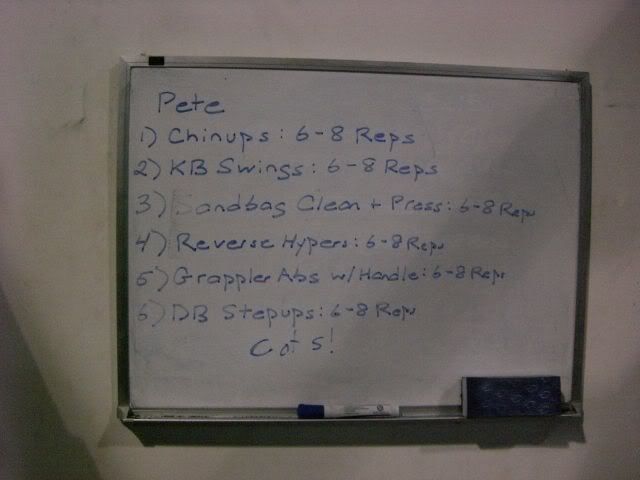 Pete
1) Chinups: 6-8 Reps
2) KB Swings: 6-8 Reps
3) Sandbag Clean + Press: 6-8 Reps
4) Reverse Hypers: 6-8 Reps
5) Grappler Abs w/ Handle: 6-8 Reps
6) DB Stepups: 6-8 Reps
Cot 5!